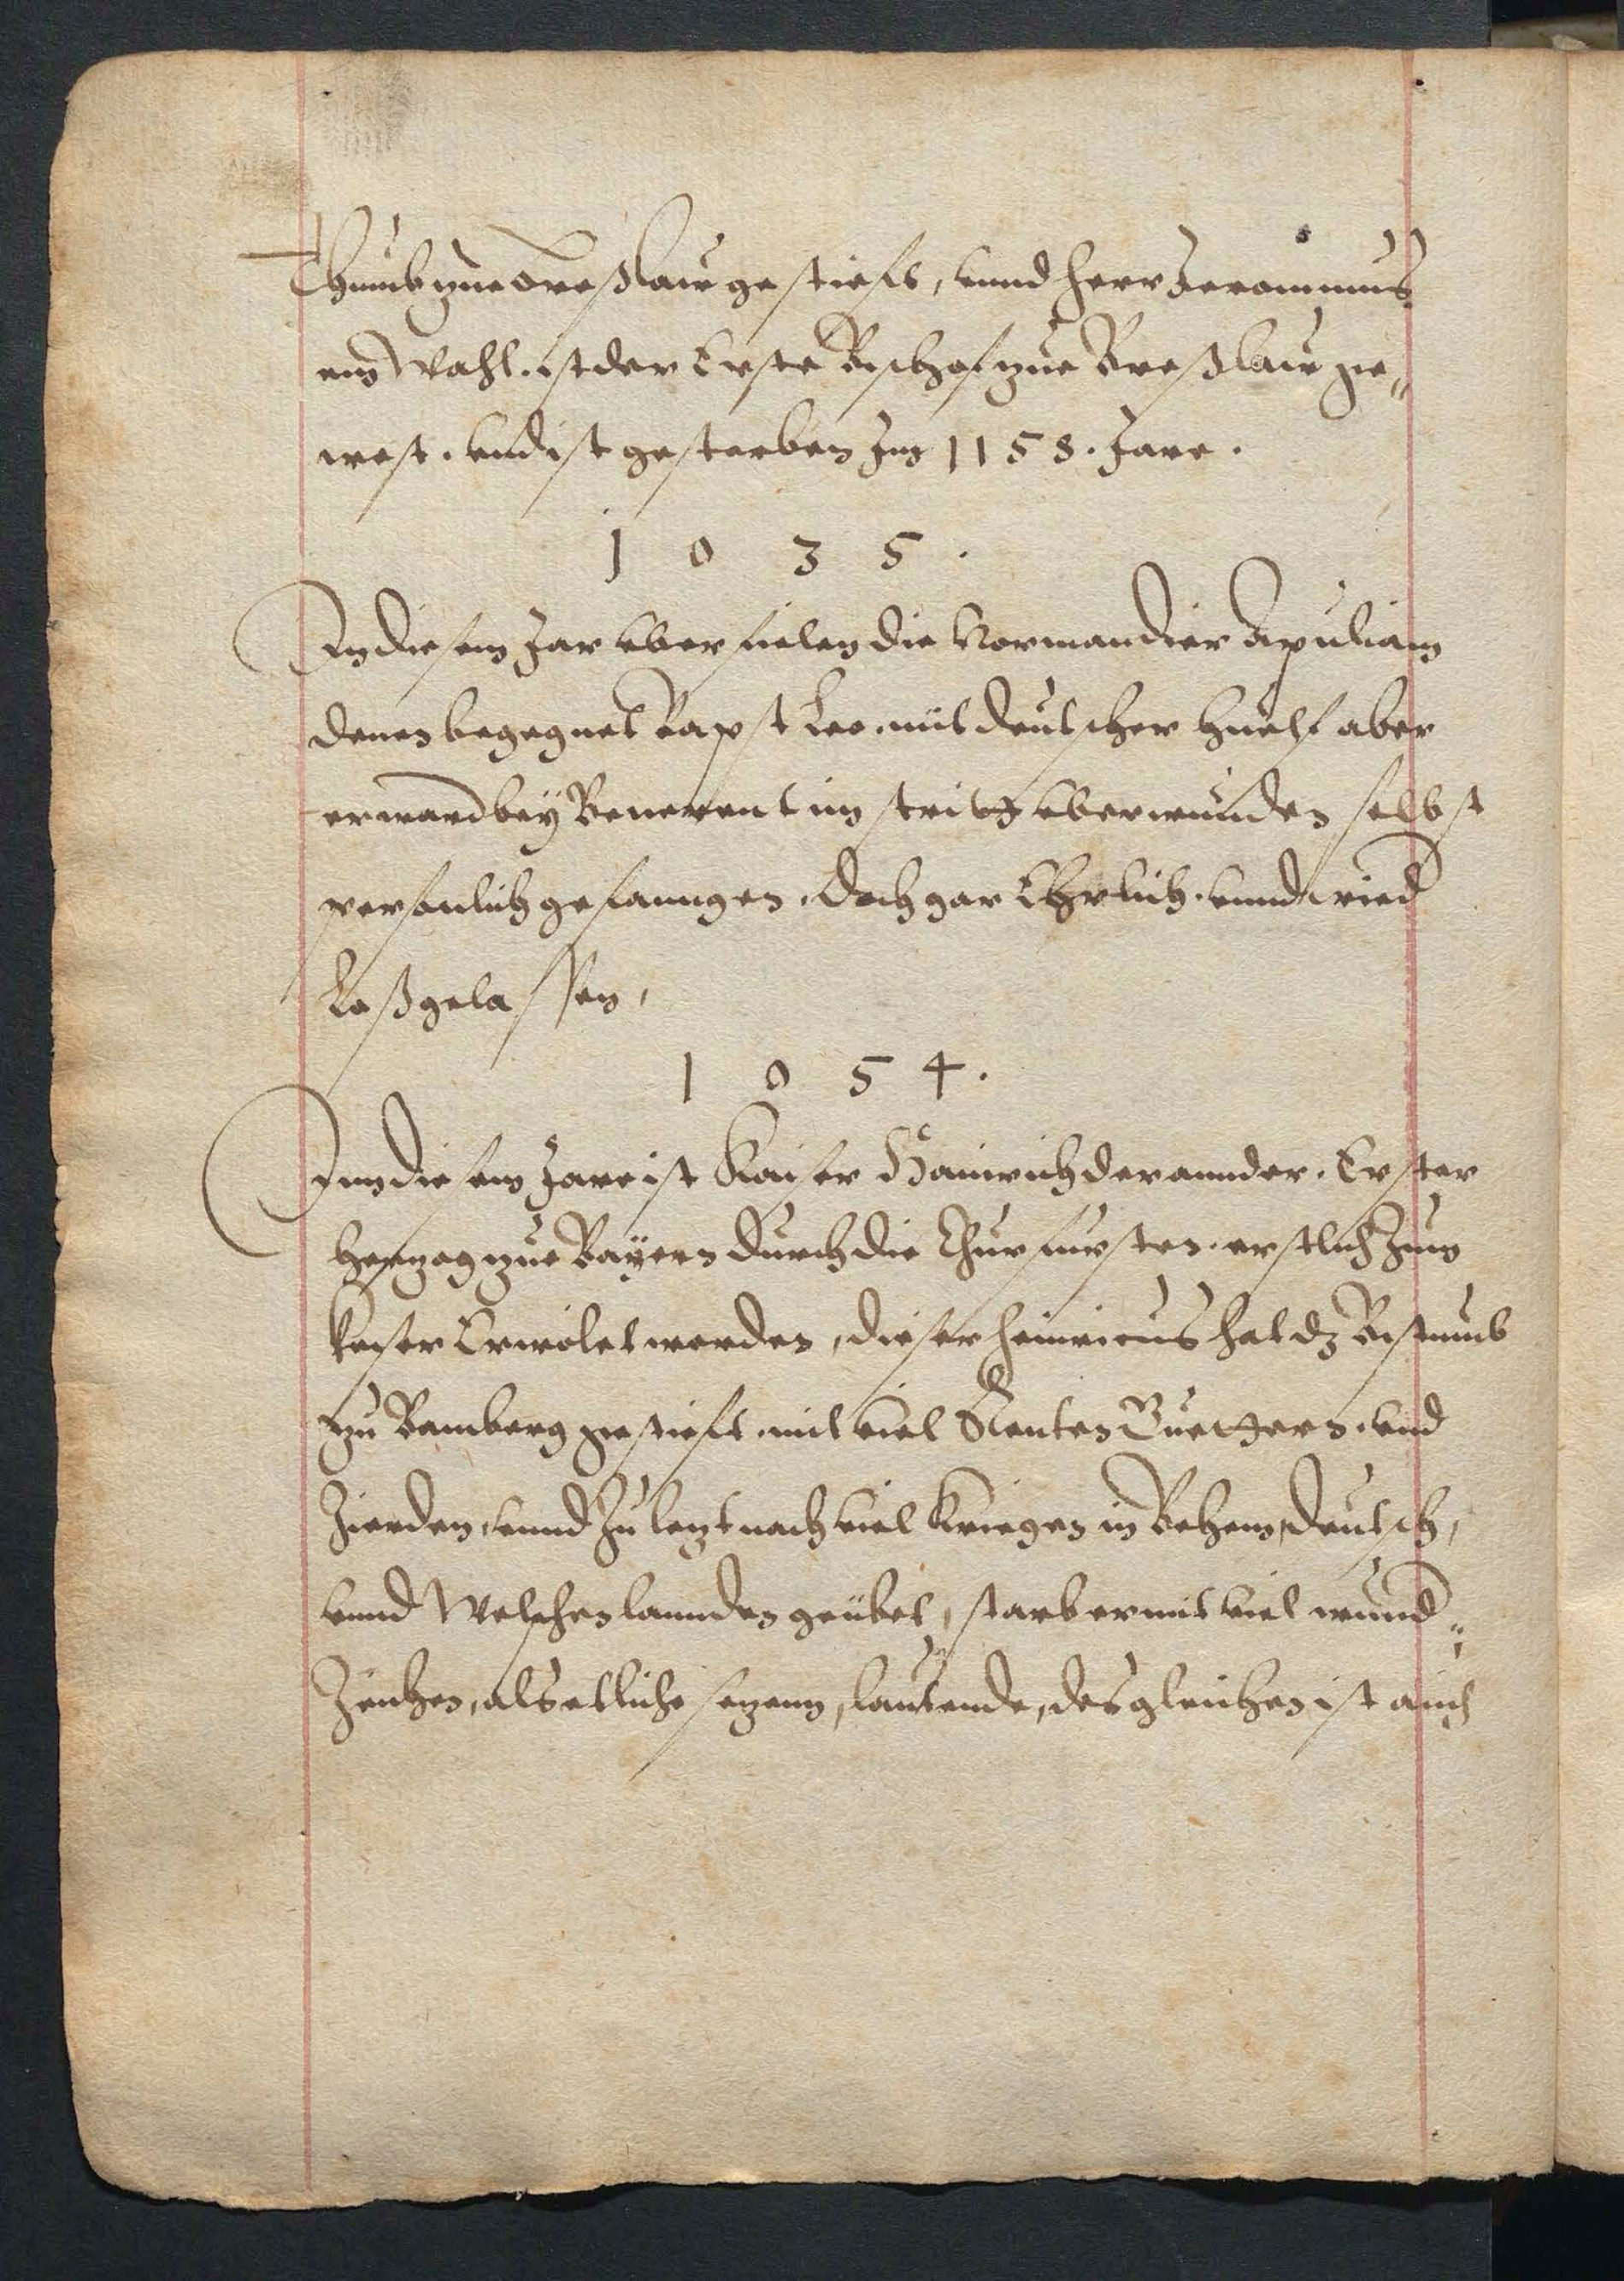 Thumb zue Breßlaw gestiefft, vnnd Herr Jeronimus
ein Wahl. ist der Erste Bischof zue Breßlaw ge„
west. vnd ist gestorben Im 1158. Jare.
1 0 3 5 .
In diesem Jar vberfielen die Normandier Apuliam
denen begegnet Bapst Leo. mit deutscher huelf aber
er ward bey Benevent im streitt vberwunden selbst
personlich gefanngen. doch gar Ehrlich. vnnd wied
Loßgelassen,
1 0 5 4 .
Inn diesem Jare ist Kaiser Hainrich der annder. Erster
Hertzog zue Bayern durch die Churfursten. erstlich Zum
keiser Erwölet worden, dieser heinricus hat dz Bistumb
zu Bamberg gestieft. mit viel Renten Guettern. vnd
Zierden, vnnd Zu letzt nach viel kriegen in Behem, deutsch,
vnnd Welschen lannden geübet, starb er mit viel wund„
Zeichen, als etliche setzenn, lautende, desgleichen ist auch